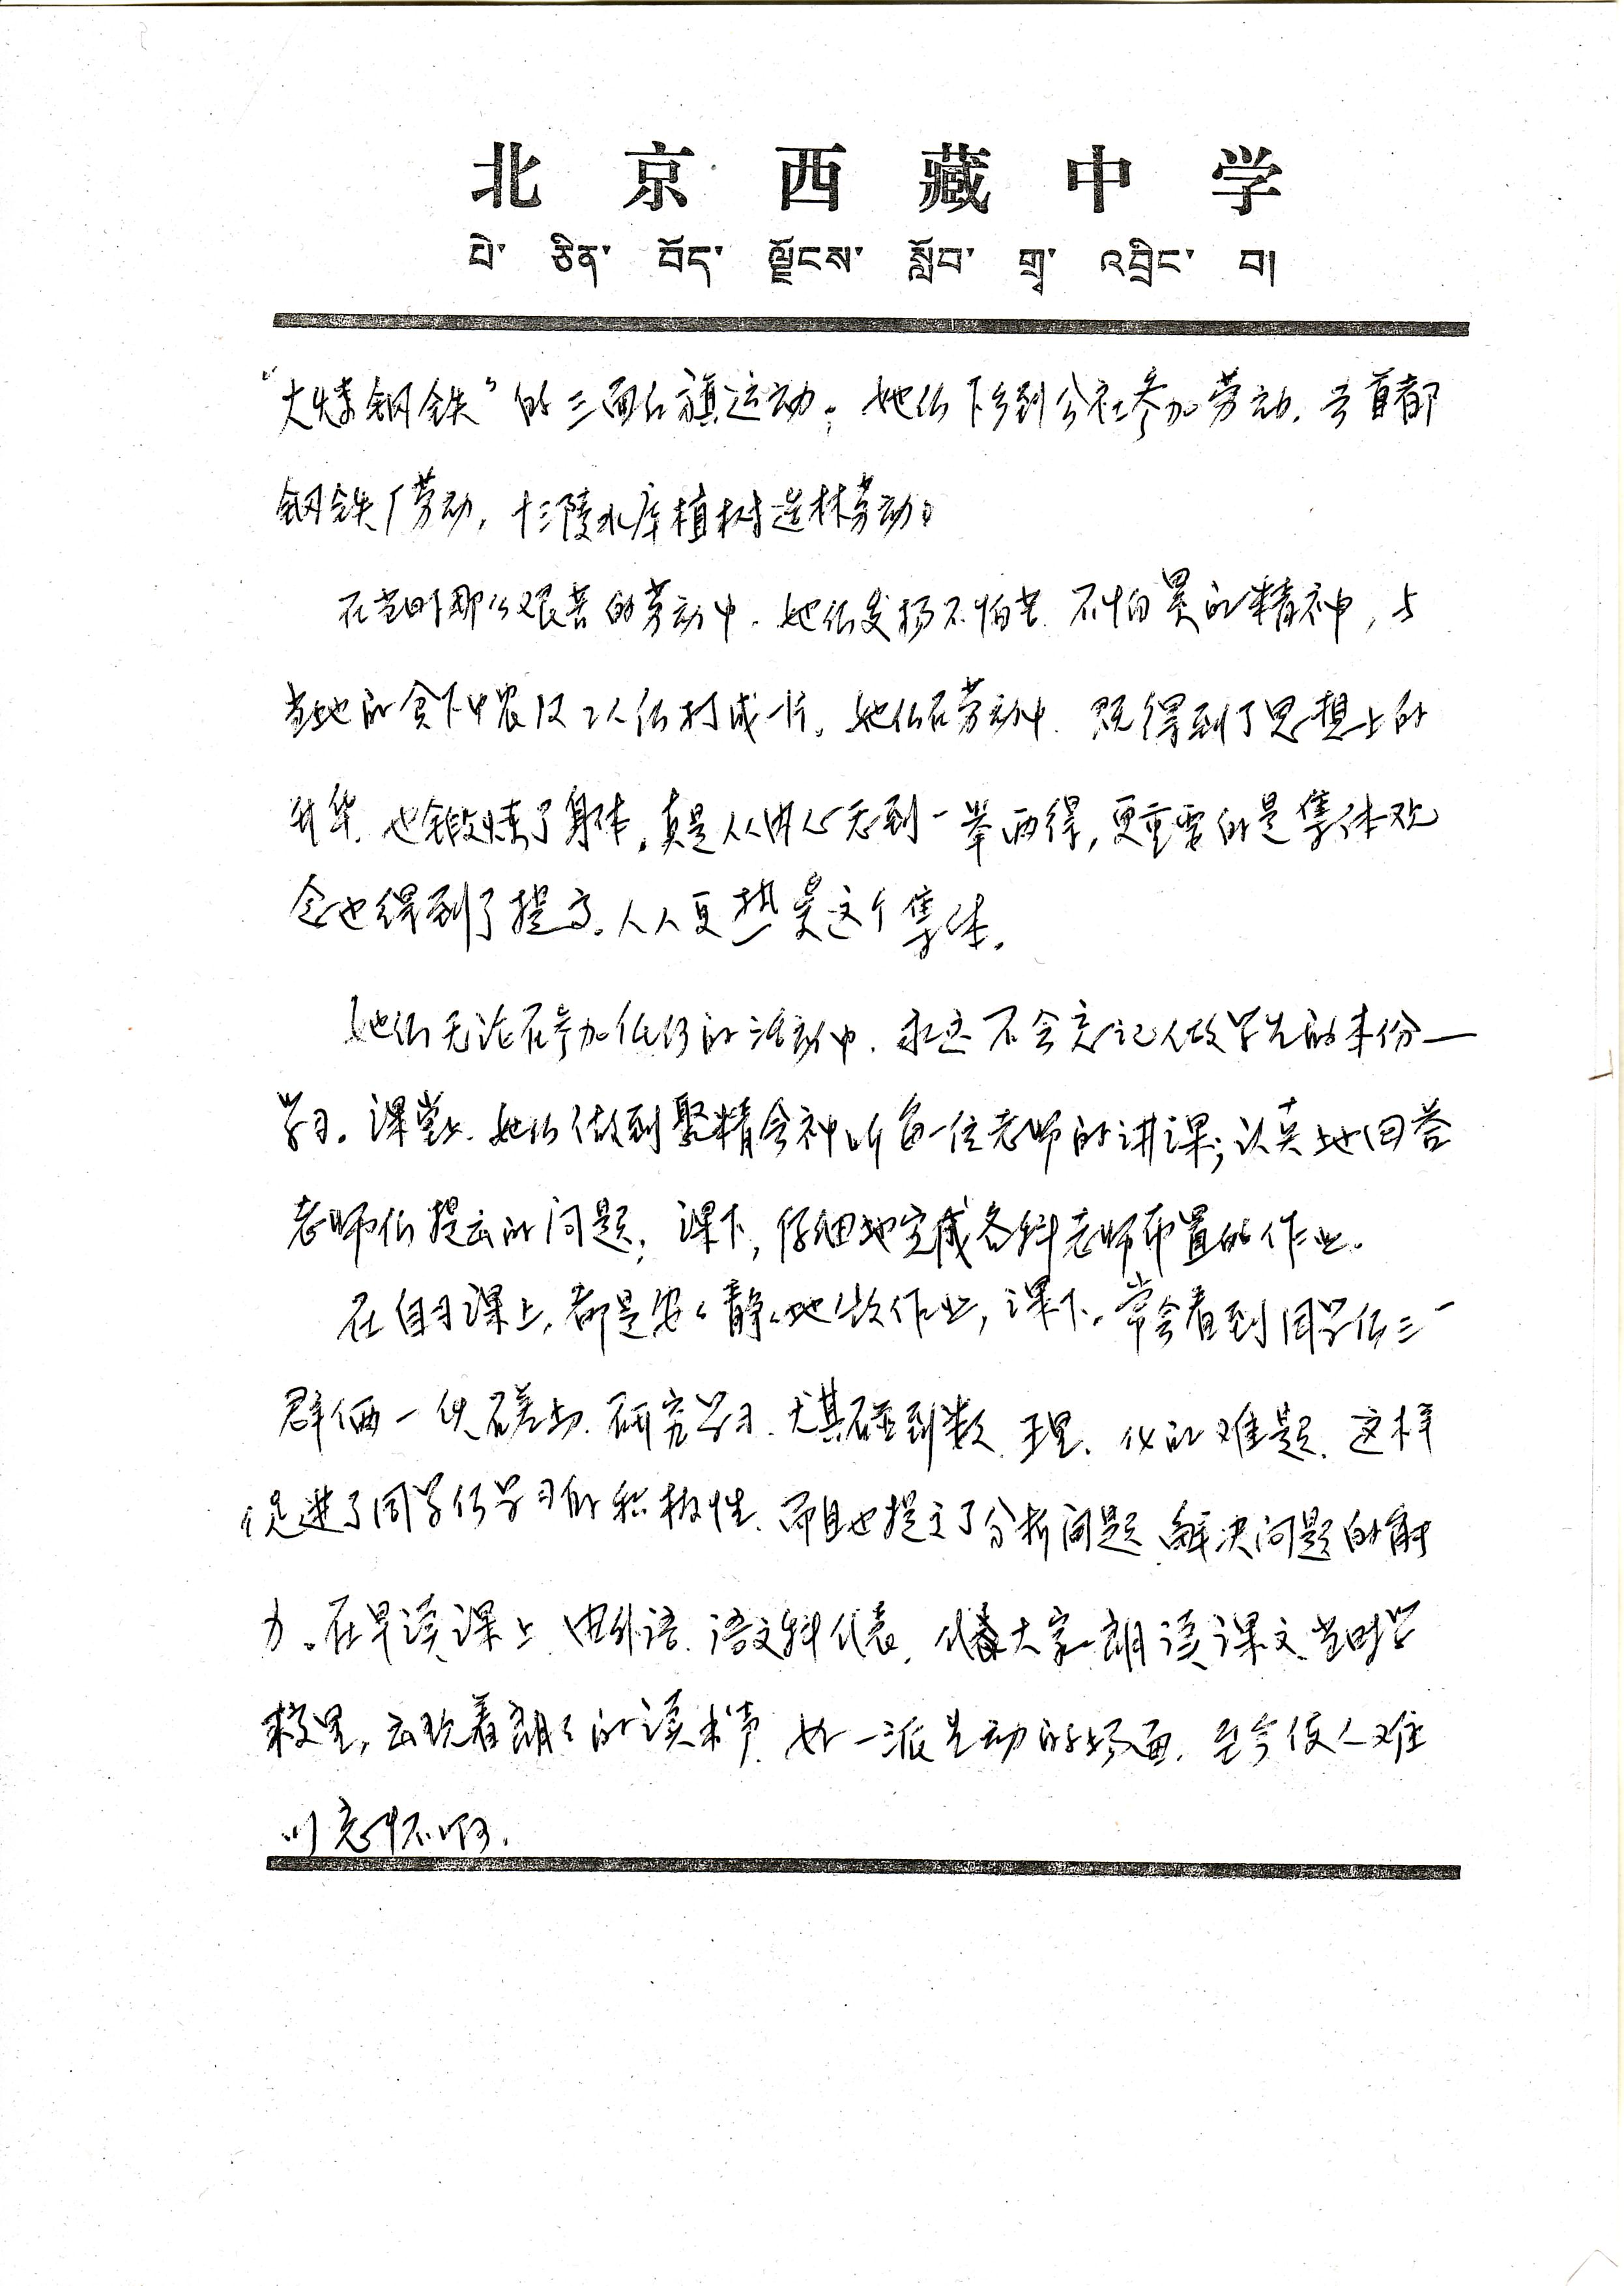 北京西藏中学
པེ་ ཅིན་ བོད་ ལྗོངས་ སློབ་ གྲྭ་ འབྲིང་ བ།
“大炼钢铁”的三面红旗运动。她们下乡到公社参加劳动，去首都
钢铁厂劳动，十三陵水库植树造林劳动。
在当时那么艰苦的劳动中，她们发扬不怕苦、不怕累的精神，与
当地的贫下中农及工人们打成一片。她们在劳动中，既得到了思想上的
升华，也锻炼了身体，真是从内心感到一举两得，更重要的是集体观
念也得到了提高。人人更热爱这个集体。
她们无论在参加任何的活动中，永远不会忘记做学生的本份—
学习。课堂上，她们做到聚精会神听每一位老师的讲课；认真地回答
老师们提出的问题；课下，仔细地完成各科老师布置的作业。
在自习课上，都是安安静静地做作业，课下，常会看到同学们三一
群俩一伙磋切、研究学习，尤其碰到数、理、化的难题，这样
促进了同学们学习的积极性，而且也提高了分析问题、解决问题的能
力。在早读课上，由外语、语文科代表，代大家朗读课文，当时学
校里，出现着朗朗的读书声，好一派生动的场面，至今使人难
以忘怀啊。